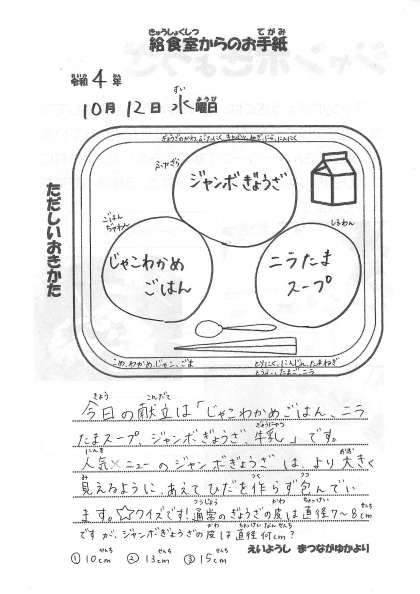 給食室からのお手紙
令和4年
10月12日水曜日
ただしいおきかた
ぎょうざのかわ、ぶたにく、キャベツ、ねぎ、にら、にんにく
ふかざら
ジャンボぎょうざ
ごはん
ぢゃわん
じゃこわかめ
ごはん
しるわん
ニラたま
スープ
こめ、わかめ、じゃこ、ごま
とりにく、にんじん、たまねぎ
とうふ、たまご、ニラ
今日の献立は「じゃこわかめごはん、ニラ
たまスープ、ジャンボぎょうざ、牛乳」です。
人気メニューのジャンボぎょうざは、より大きく
見えるように、あえてひだを作らず包んでい
ます。☆クイズです!通常のぎょうざの皮は直径7~8cm
ですが、ジャンボぎょうざの皮は直径何cm?
①10cm ②13cm ③15cm
えいようし まつながゆかより